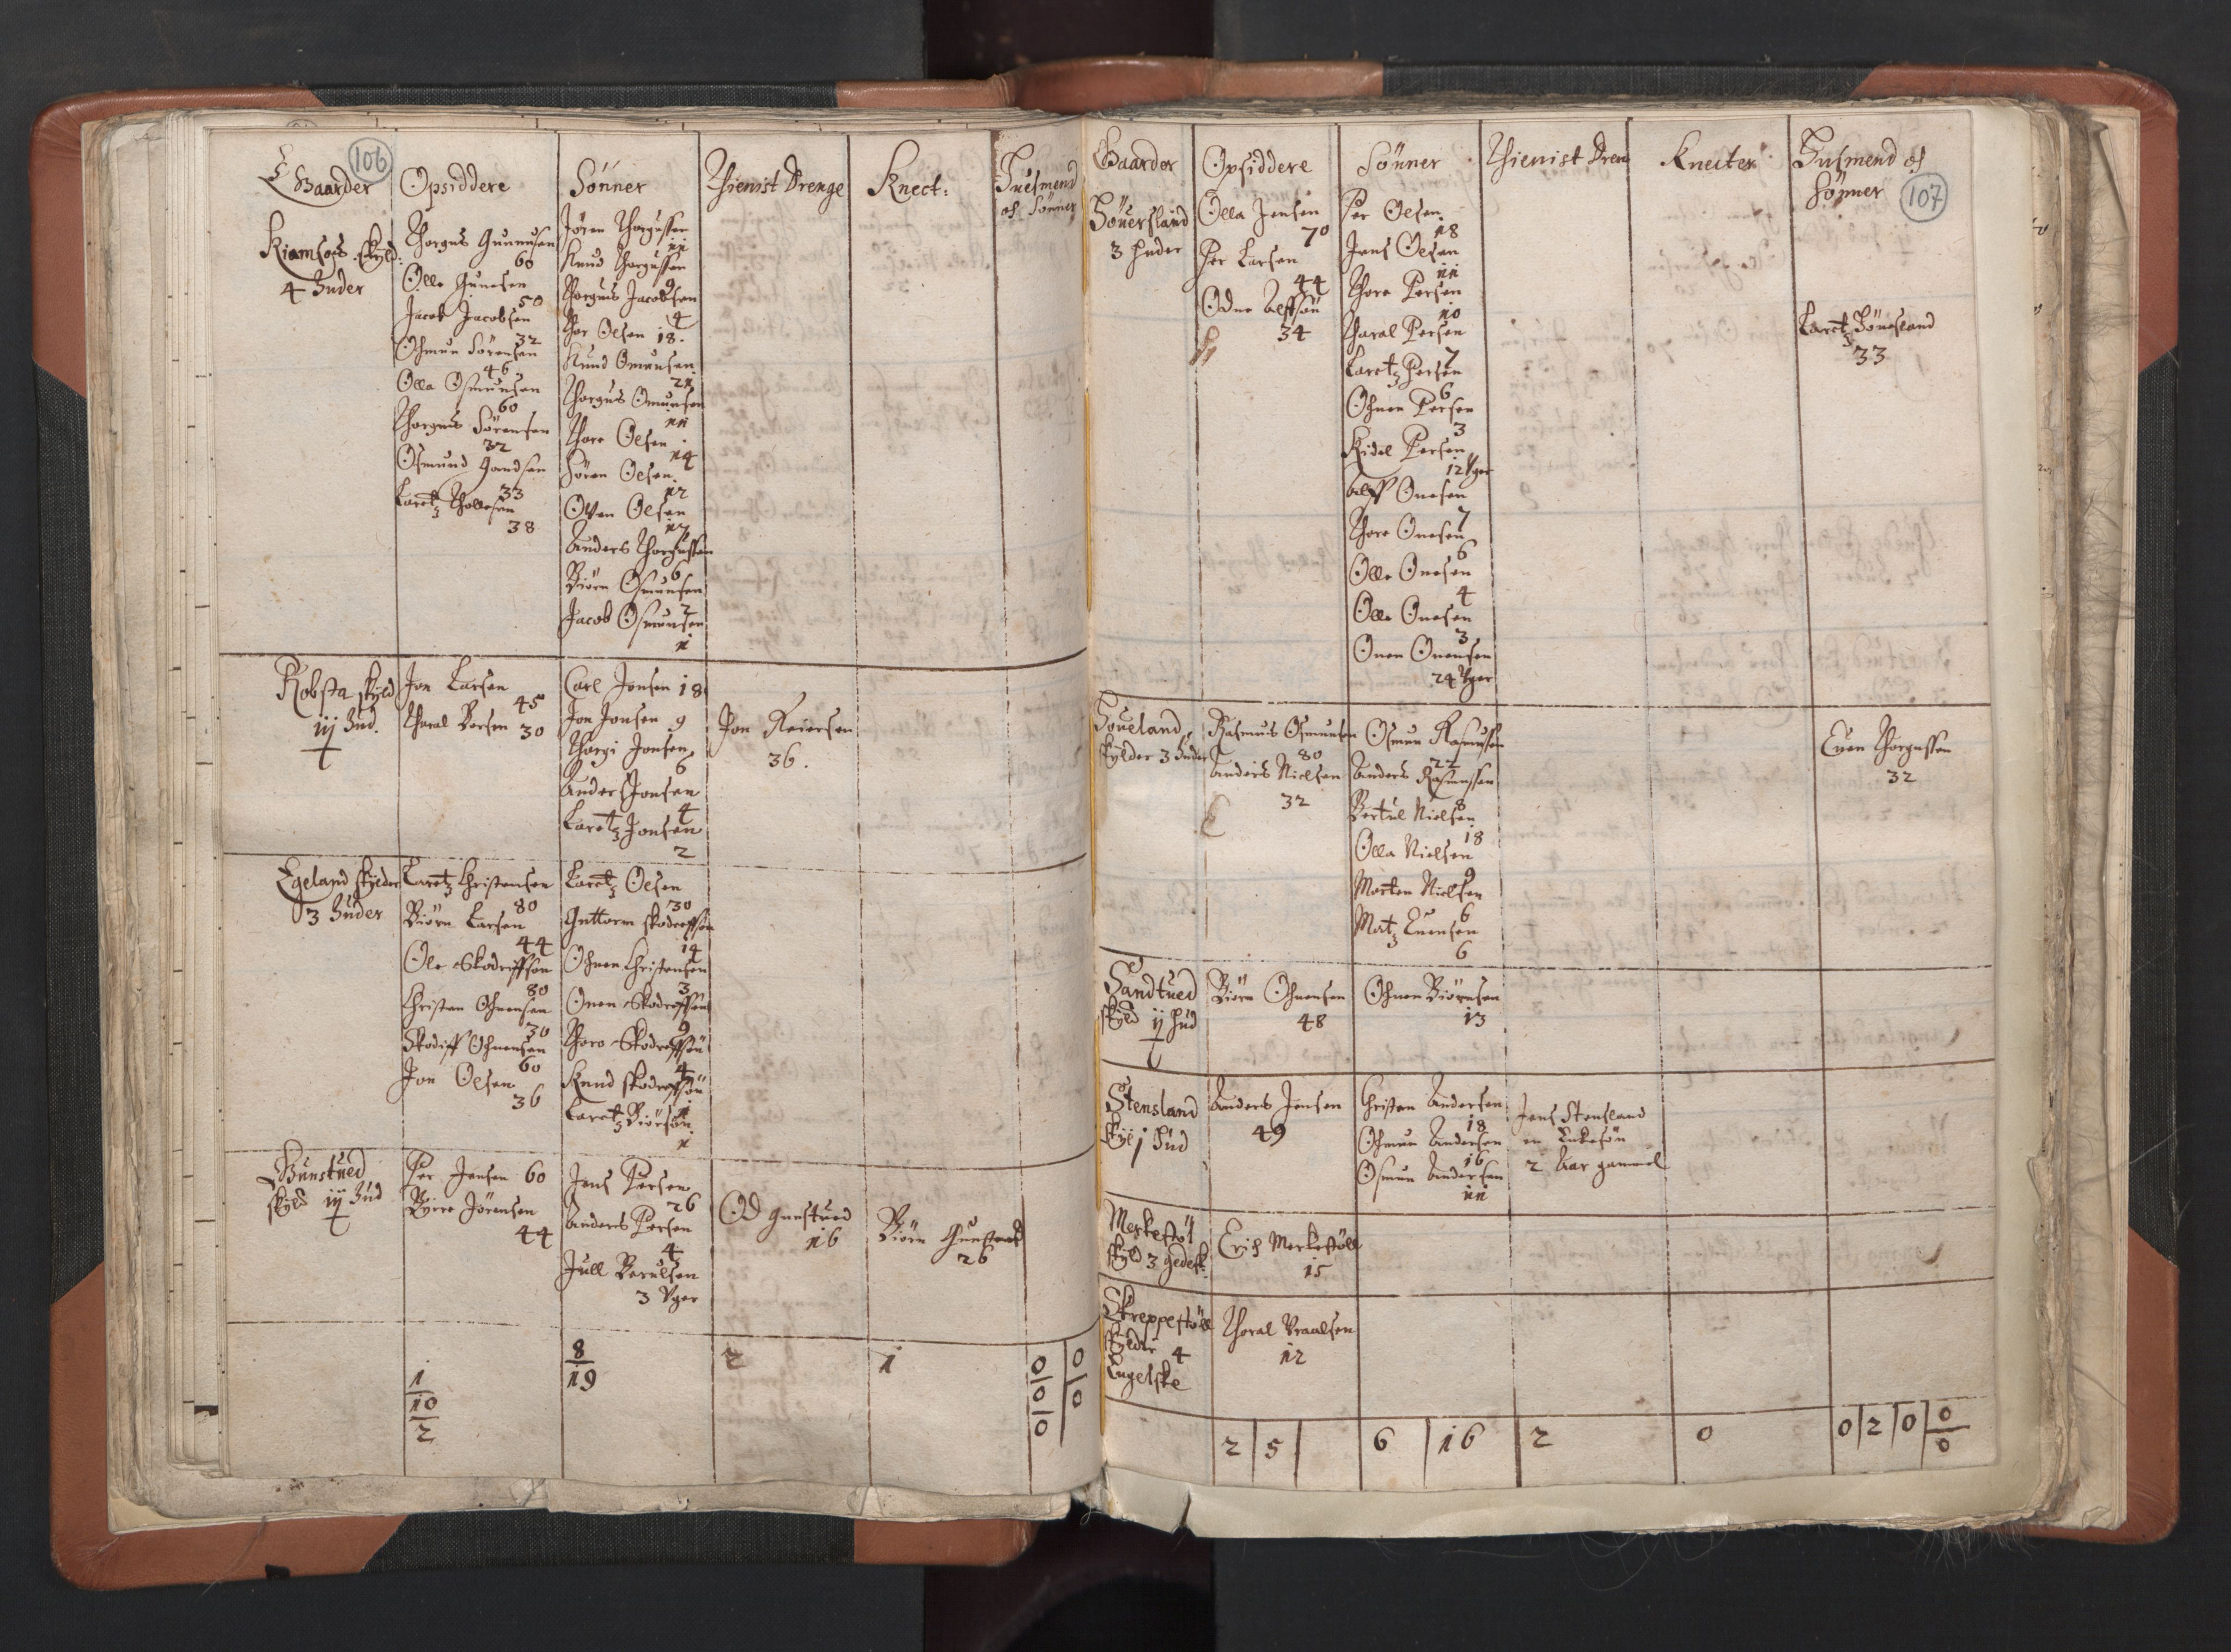 106
Gaarder
Opsiddere
Sönner
Thienist Drenge
Knect:
Husmend
oc Sönner
Riamsos. skÿld:
4 Huder
Thorgus Gunnusen
60
Olle Gunesen
50
Jacob Jacobsen
32
Ohmun Sörensen
46
Olla Osmunsen
60
Thorgus Sörensen
32
Osmund Gandsen
33
Laretz Thollesen
38
Jören Thorgussen
11
Knud Thorgussen
9
Thorgus Jacobsen
4
Thor Olsen 18.
Knud Omunsen
21
Thorgus Omunsen
11
Thore Olsen
14
Sören Olsen
12
Often Olsen
17
Anders Thorgussen
6
Biörn Osmunsen
2
Jacob Osmunsen
1
Robsta skÿld
iij Hud.
Jon Larsen
45
Tharal Bersen 30
Carl Jonsen 18
Jon Jonsen 9
Thorgi Jonsen
6
Anders Jonsen
4
Laretz Jonsen
2
Jon Reiersen
36.
Egeland skÿlder
3 Huder
Laretz Christensen
80
Biörn Larsen
44
Ole Skodriffsön
80
Christen Ohnensen
30
Skodiff Ohnensen
60
Jon Olsen
36
Laretz Olsen
30
Guttorm skodreffsön
14
Ohnen Christensen
3
Onen Skodreffsön
9
Thoro Skodreffsön
4
Knud skodreffsön
1
Laretz Biörsön
1
Gunstued
skÿld iij Hud
Per Jensen 60
Byrre Jörensen
44
Jens Persen
26
Anders Persen
4
Jull Berulsen
3 Vger
Od Gunstued
16
Biörn Gunstued
26
1
10
2
8
19
2
1
0
0
0
0
0
107
Gaarder
Opsiddere
Sönner
Thienist Dren
Knecter
Husmend oc
Sönner
Höuersland
3 huder
Olla Jensen
70
Per Larsen
44
Odne Alffsön
34
Per Olsen
18
Jens Olsen
11
Thore Persen
10
Tharal Persen
7
Laretz Persen
6
Ohnen Persen
3
Kidel Persen
12 Vger
Alff Onesen
7
Thore Onesen
6
Olle Onesen
4
Olle Onesen
3
Onen Onensen
24 Vger
Laretz Hönesland
33
Houeland,
skÿlder 3 huder
Rasmus Osmunsen
80
Anders Nielsen
32
Osmun Rasmussen
22
Anders Rasmussen
8
Bertul Nielsen
18
Olla Nielsen
9
Morten Nielsen
6
Matz Euensen
6
Euen Thorgussen
32
Sandtued
skÿld ij hud
Biörn Ohnensen
48
Ohnen Biörnsen
13
Stensland
skÿl j Hud
Anders Jensen
49
Christen Andersen
18
Ohmun Andersen
16
Osmun Andersen
11
Jens Stensland
en Enkesön
2 Aar gammel
Merkestöl
skÿld 3 gedesk:
Erich Merkestöll
15
Skreppestöll
skÿlder 4
Engelske
Thoral Vraalsen
12
2 5
6 16
2
0
0 2 0 0
0